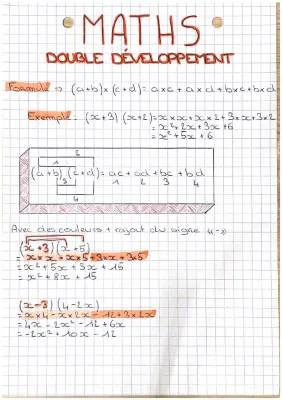 MATHS
DOUBLE DÉVELOPPEMENT
Formule => (a+b)x(c+d) = axc + axd + bxc + bxd
Exemple : (x+3)(x+2) = x×x + x×2 + 3×x + 3×2
= x² + 2x + 3x + 6
= x² + 5x + 6
2
1
(a+b)(c+d) = ac + ad + bc + bd
3
1 2 3 4
4
Avec des couleurs + rajout du signe « - »
(x+3)(x+5)
= x×x + x×5 + 3×x + 3×5
= x² + 5x + 3x + 15
= x² + 8x + 15
(x-3)(4-2x)
= x×4 - x×2x - 12 + 3×2x
= 4x - 2x² - 12 + 6x
= -2x² + 10x - 12